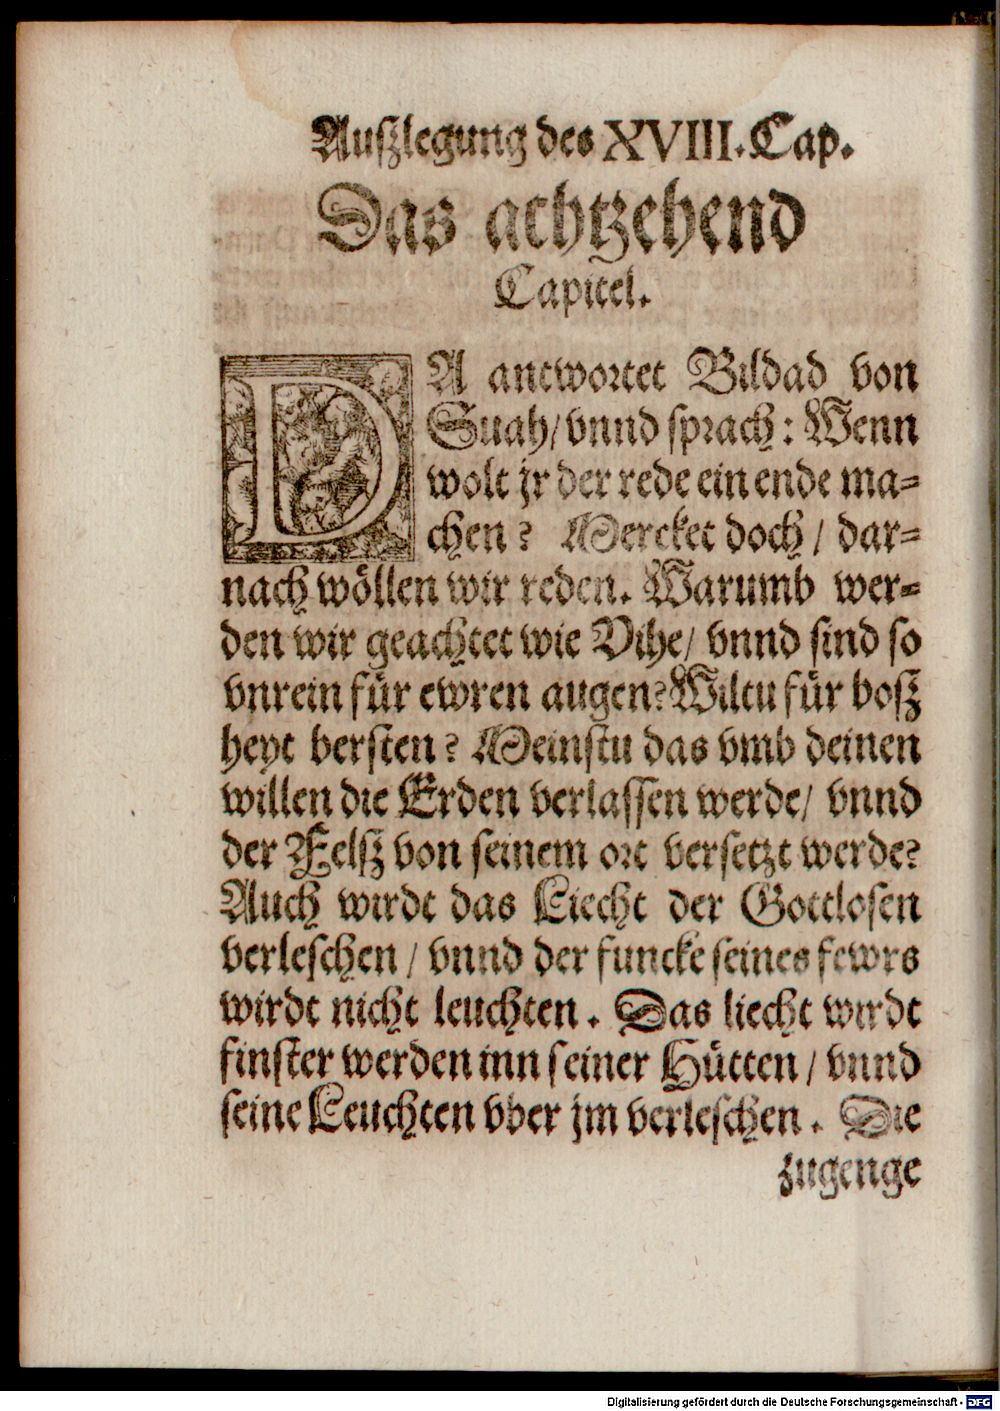 Auſzlegung des XVIII. Cap.
Das achtzehend
Capitel.
DA antwortet Bildad von
Suah/ vnnd ſprach: Wenn
wolt jr der rede ein ende ma-
chen? Mercket doch / dar-
nach wöllen wir reden. Warumb wer-
den wir geachtet wie Vihe/ vnnd ſind ſo
vnrein für ewren augen? Wiltu für boſz
heyt berſten? Meinſtu das vmb deinen
willen die Erden verlaſſen werde/ vnnd
der Felſz von ſeinem ort verſetzt werde?
Auch wirdt das Liecht der Gottloſen
verleſchen / vnnd der funcke ſeines fewrs
wirdt nicht leuchten. Das liecht wirdt
finſter werden inn ſeiner Hütten / vnnd
ſeine Leuchten vber jm verleſchen. Die
zugenge
Digitalisierung gefördert durch die Deutsche Forschungsgemeinschaft - DFG